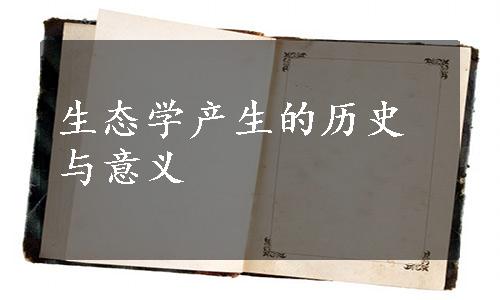 生态学产生的历史
与意义